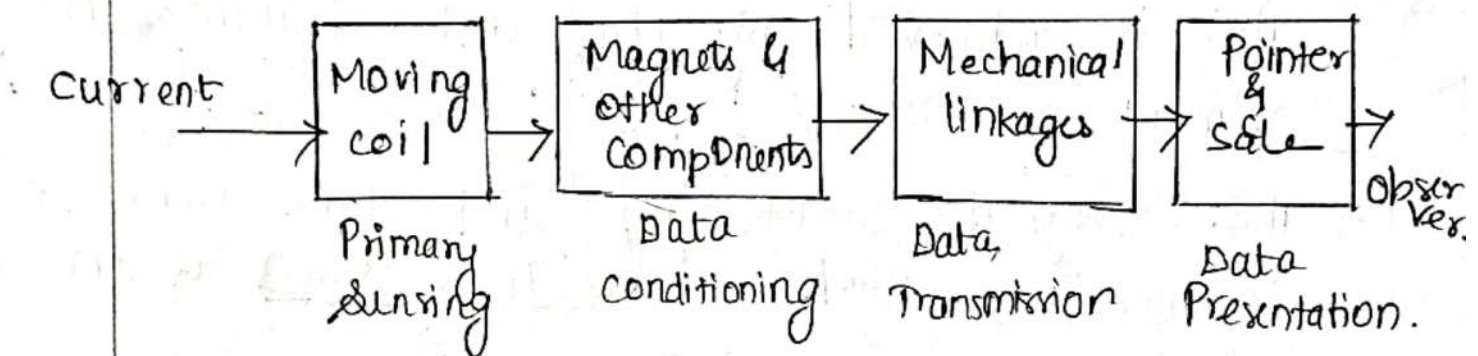 Current
Moving
coil
Magnets &
other
Components
Mechanical
linkages
Pointer
&
scale
Obser
ver.
Primary
Sensing
Data
conditioning
Data
Transmission
Data
Presentation.